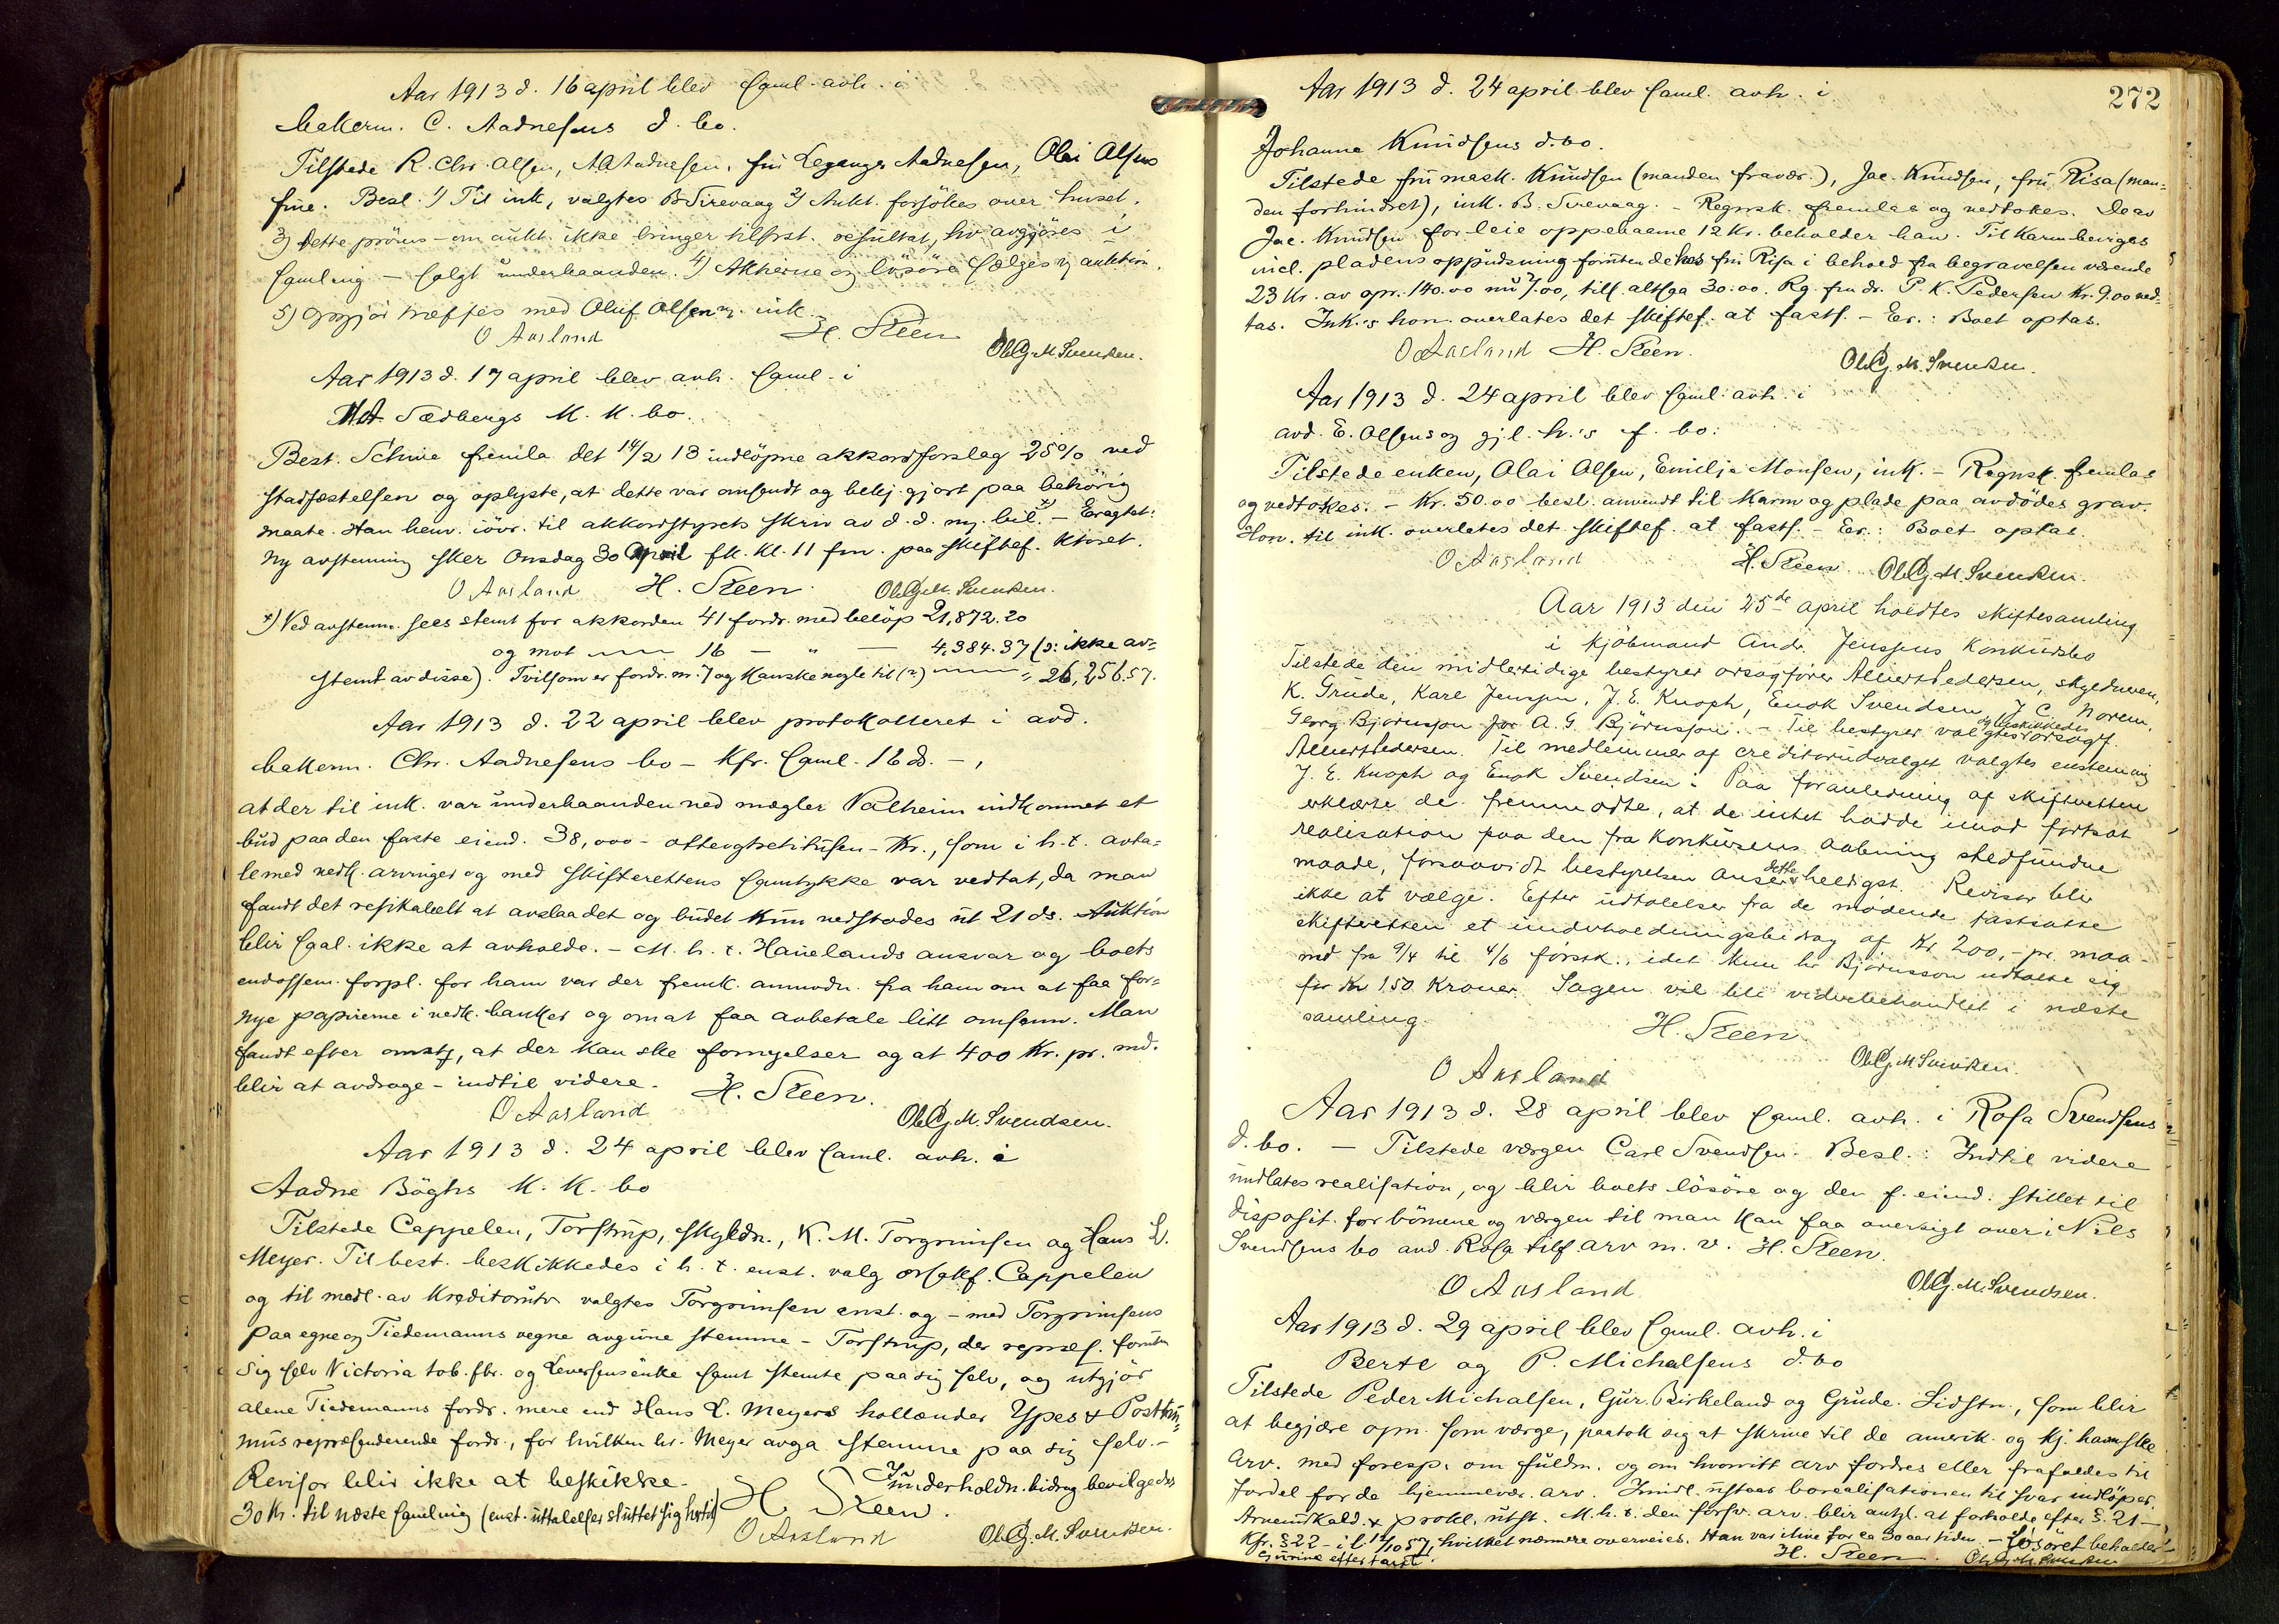 Aar 1913 d. 16 april blev saml. avh. i
bakerm. C. Aadnesens d. bo.
Tilstede R. Chr. Olsen, A Aadnesen, fru Leganger Aadnesen, Olai Olsens
frue. Besl. 1) Til ink. valgtes B Sirevaag 2) Aukt. forsökes over huset.
3) Dette pröves – om aukt. ikke bringer tilfrst. resultat, hv. avgjöres i
samling – solgt underhaanden. 4) Aktierne og lösöre sælges v. auktion.
5) Opgjör træffes med Oluf Olsen v. ink.
O Aasland H. Steen Ole Gj. M. Svendsen.
Aar 1913 d. 17 april blev avh. saml. i
Sædbergs K. K. bo.
Best. Schiöe fremla det 14/2 13 indlöpne akkordforslag 25% ved
stadfæstelsen og oplyste, at dette var omsendt og bekj. gjort paa behörig
maate. Han henv. iövr. til akkordstyrets skriv av d. d. m. bil. x) – Eragtet:
Ny avstemning sker Onsdag 30 April fk. kl. 11 fm. paa skiftef. ktoret.
O Aasland H. Steen Ole Gj. M. Svendsen.
x) Ved avstemn. sees stemt for akkorden 41 fordr. med belöp 21,872.20
og mot — 16 — " — 4,384.37 (ɔ: ikke av-
stemt av disse). Tvilsom er fordr. nr. 7 og kanske nogle til (?) — " 26,256.57.
Aar 1913 d. 22 april blev protokolleret i avd.
bakerm. Chr. Aadnesens bo – kfr. saml. 16 ds. –,
at der til ink. var underhaanden ved mægler Valheim indkommet et
bud paa den faste eiend. 38,000 – otteogtretitusen – Kr., som i h. t. avta-
le med vedk. arvinger og med skifterettens samtykke var vedtat, da man
fandt det resikabelt at avslaa det og budet kun vedstodes til 21 ds. Auktion
blir saal. ikke at avholde. – M. h. t. Hauelands ansvar og boets
endossem. forpl. for ham var der fremk. anmodn. fra ham om at faa for-
nye papirerne i vedk. banker og om at faa avbetale litt om senn. Man
fandt efter omst., at der kan ske fornyelser og at 400 Kr. pr. md.
blir at avdrage – indtil videre. H. Steen.
O Aasland Ole Gj. M. Svendsen.
Aar 1913 d. 24 april blev saml. avh. i
Aadne Böghs K. K. bo
Tilstede Cappelen, Torstrup, skyldn., K. M. Torgrimsen og Hans L.
Meyer. Til best. beskikkedes i h. t. enst. valg orsakf. Cappelen
og til medl. av kreditorutv. valgtes Torgrimsen enst. og – med Torgrimsens
paa egne og Tiedemanns vegne avgivne stemme – Torstrup, der repræs. foruten
sig selv Victoria tob. fbr. og Leversens enke samt stemte paa sig selv, og utgjör
alene Tiedemanns fordr. mere end Hans L. Meyers hollænder Ypes & Posthu-
mus repræsenterende fordr., for hvilken hr. Meyer avga stemme paa sig selv. –
Revisor blir ikke at beskikke. I underholdn. bidrag bevilgedes
30 Kr. til næste samling (enst. uttalelser sluttet sig hertil) H. Steen.
O Aasland Ole Gj. M. Svendsen.
272
Aar 1913 d. 24 april blev saml. avh. i
Johanne Knudsens d. bo.
Tilstede fru mask. Knudsen (manden fravær.), Jac. Knudsen, fru Risa (man-
den forhindret), ink. B. Sirevaag. – Regnsk. fremlaa og vedtokes. De av
Jac. Knudsen for leie oppebaarne 12 Kr. beholder han. Til karm beviges
incl. pladens oppudsning foruten de hos fru Risa i behold fra begravelsen værende
23 Kr. av opr. 140.00 nu 7.00, tils. altsaa 30.00. Rg. fra dr. P. K. Pedersen Kr. 9.00 ved-
tas. Ink.'s hon. overlates det skiftef. at fasts. – Er.: Boet optas.
O Aasland H. Steen. Ole Gj. M. Svendsen.
Aar 1913 d. 24 april blev saml. avh. i
avd. E. Olsens og gjl. h.'s f. bo:
Tilstede enken, Olai Olsen, Emilje Monsen, ink. – Regnsk. fremlaa
og vedtokes. – Kr. 50.00 besl. anvendt til karm og plade paa avdödes grav.
Hon. til ink. overlates det skiftef. at fasts. – Er.: Boet optas.
O Aasland H. Steen. Ole Gj. M. Svendsen.
Aar 1913 den 25de april holdtes skiftesamling
i kjöbmand Andr. Jenssens konkursbo
Tilstede den midlertidige bestyrer orsagförer Albert Pedersen, skyldneren,
K. Grude, Karl Jenssen, J. E. Knoph, Enok Svendsen, J. C. Norem,
Georg Björnsson for A. G. Björnsson. – Til bestyrer valgtes og beskikkedes orsagf.
Albert Pedersen. Til medlemmer af creditorudvalget valgtes enstemmig
J. E. Knoph og Enok Svendsen. Paa foranledning af skifteretten
erklærte de fremmödte, at de intet hadde imod fortsat
realisation paa den fra konkursens aabning stedfundne
maade, forsaavidt bestyrelsen anser dette heldigst. Revisor blir
ikke at vælge. Efter udtalelser fra de mödende fastsatte
skifteretten et underholdningsbidrag af Kr 200,- pr. maa-
ned fra 9/4 til 4/6 förstk., idet kun hr Björnsson udtalte sig
for Kr 150 Kroner. Sagen vil bli viderebehandlet i næste
samling. H. Steen.
O Aasland Ole Gj. M. Svendsen.
Aar 1913 d. 28 april blev saml. avh. i Rosa Svendsens
d. bo. – Tilstede værgen Carl Svendsen. Besl.: Indtil videre
undlates realisation, og blir boets lösöre og den f. eiend. stillet til
disposit. for börnene og værgen til man kan faa oversigt over i Nils
Svendsens bo avd. Rosa tilf. arv m. v. H. Steen.
O Aasland Ole Gj. M. Svendsen.
Aar 1913 d. 29 april blev saml. avh. i
Berte og P. Michalsens d. bo
Tilstede Peder Michalsen, Gur. Birkeland og Grude. Sidstn., som blir
at begjære opn. som værge, paatok sig at skrive til de amerik. og kj. hamske
arv. med foresp. om fuldm. og om hvorvitt arv fordres eller frafaldes til
fordel for de hjemmevær. arv. Imidl. utstaar borealisationen til svar indlöper.
Arveindkald. & prokl. utst. M. h. t. den forsv. arv. blir antgl. at forholde efter §. 21 –
kfr. § 22 – i l. 57, hvilket nærmere overveies. Han var ilive for ca 30 aar siden. – Lösöret beholder
Gurine efter taxt. H. Steen. Ole Gj. M. Svendsen